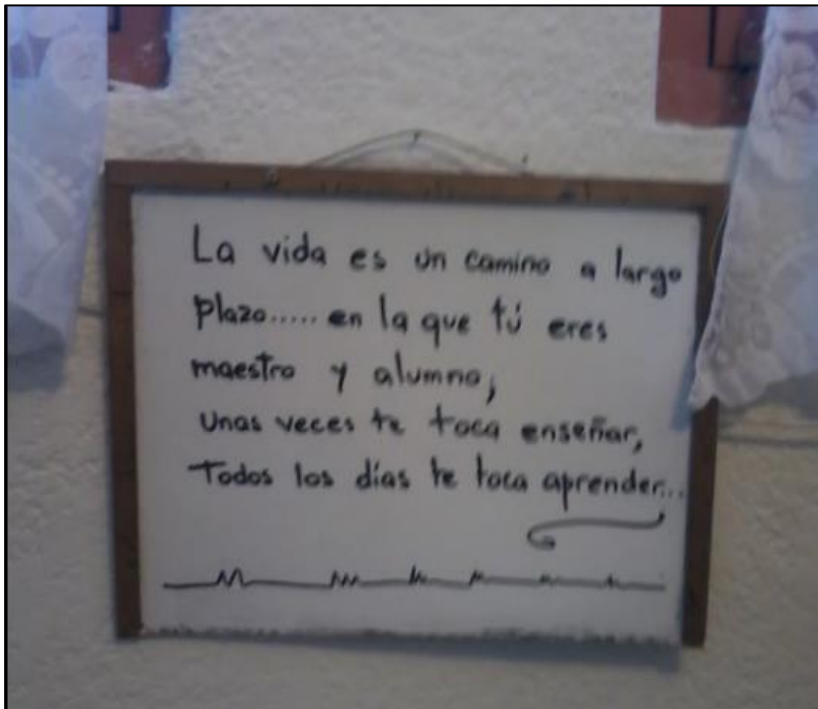 La vida es un camino a largo
plazo..... en la que tú eres
maestro y alumno;
Unas veces te toca enseñar,
Todos los días te toca aprender...